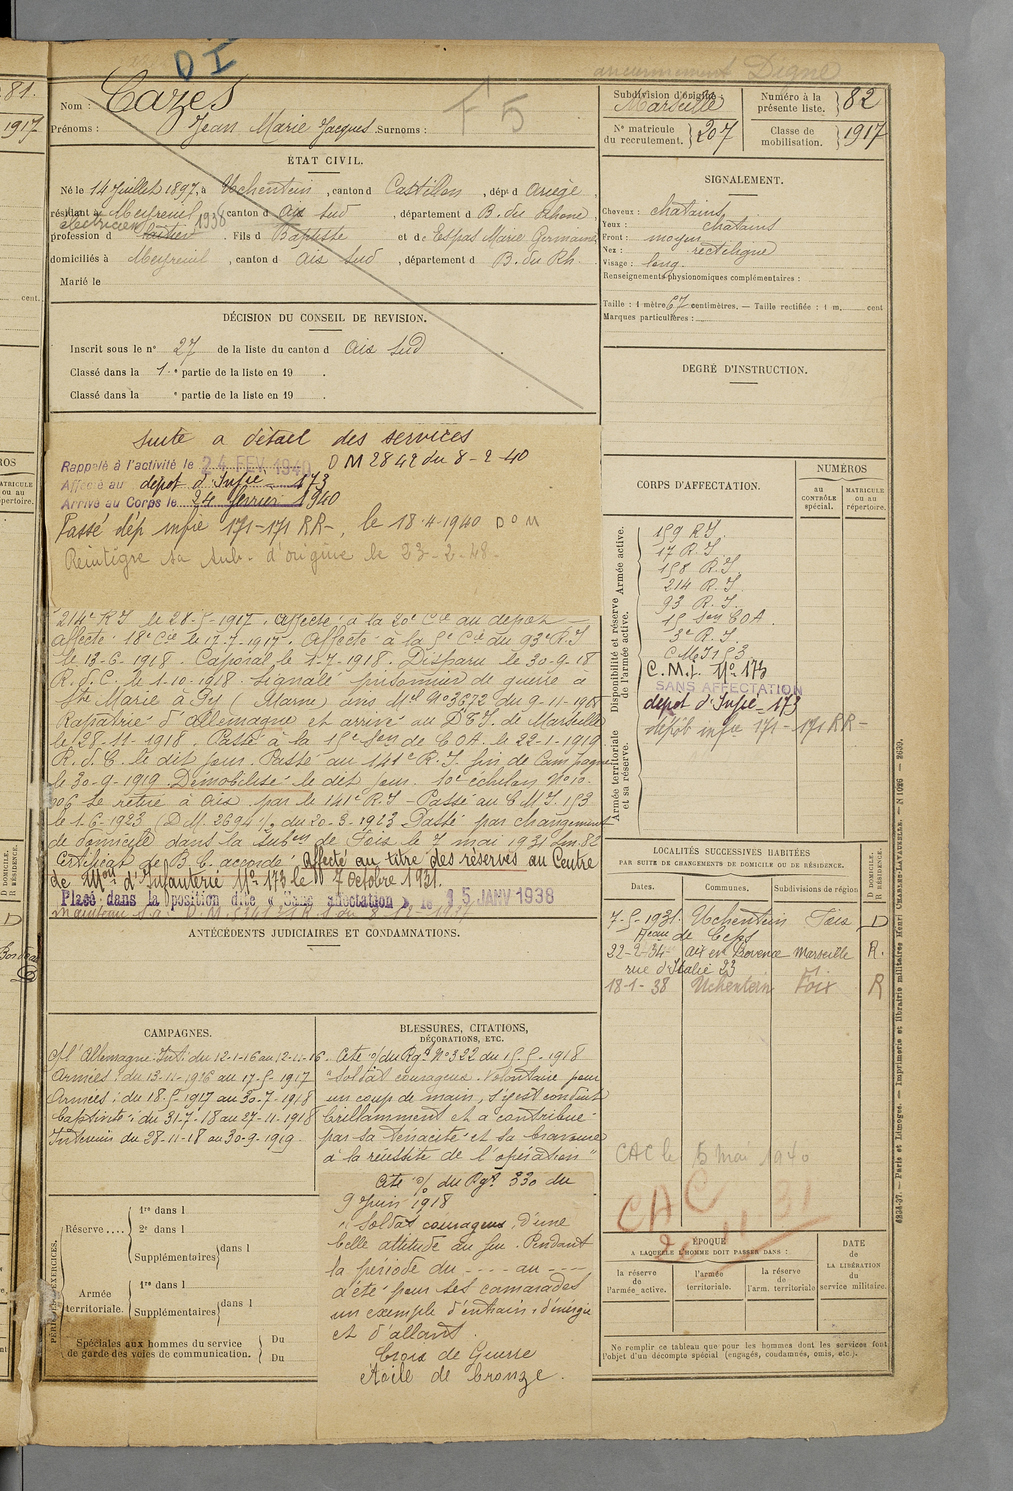 DI
anciennement Digne
81.
1917
Nom : Cazes
F 5
Prénoms : Jean Marie Jacques Surnoms :
Subdivision d'origine : Marseille
Numéro à la présente liste. 82
N° matricule du recrutement. 207
Classe de mobilisation. 1917
ÉTAT CIVIL.
Né le 14 Juillet 1897, à Uchentein, canton d Castillon, dépt d Ariège,
résidant à Meyreuil, canton d Aix Sud, département d B. du Rhône,
électricien 1938
profession d . Fils d Baptiste et de Espas Marie Germaine
domiciliés à Meyreuil, canton d Aix Sud, département d B. du Rh.
Marié le
SIGNALEMENT.
Cheveux : chatains
Yeux : chatains
Front : moyen
Nez : rectiligne
Visage : long
Renseignements physionomiques complémentaires :
Taille : 1 mètre 67 centimètres. — Taille rectifiée : 1 m. cent
Marques particulières :
DÉCISION DU CONSEIL DE REVISION.
Inscrit sous le n° 27 de la liste du canton d Aix Sud
Classé dans la 1e partie de la liste en 19 .
Classé dans la e partie de la liste en 19 .
DEGRÉ D'INSTRUCTION.
Suite a détail des services
Rappelé à l'activité le 24 FEV 1940 DM 2842 du 8-2-40
Affecté au dépot d'Infie 173
Arrivé au Corps le 24 février 1940
Passé dép infie 171-171 RR-, le 18-4-1940 D°M
Réintègre sa sub. d'origine le 23-2-48-
214e RI le 28-5-1917. Affecté à la 20e Cie au dépot
affecté 18e Cie le 17-7-1917. Affecté à la 5e Cie du 93e RI
le 13-6-1918. Caporal le 1-7-1918. Disparu le 30-9-18
R.d.C. le 1-10-1918. Signalé prisonnier de guerre à
Ste Marie à Py (Marne) avis Mel N° 3672 du 9-11-1918
Rapatrié d'allemagne et arrivé au DTI. de Marseille
le 28-11-1918. Passé à la 15e Son de COA. le 22-1-1919
R.d.C. le dit jour. Passé au 141e R.I. fin de Campagne
le 30-9-1919. Démobilisé le dit jour 10e échelon N° 10.
006 Se retire à Aix par le 141e R.I - Passé au CMI. 153
le 1-6-1923 (D.M. 2694 1/. du 20-3-1923 Passé par changement
de domicile dans la subon de Foix le 7 mai 1931 Lm. 82
Certificat de B.C. accordé. Affecté au titre des réserves au Centre
de Mon d'Infanterie N° 173 le 7 Octobre 1931.
Placé dans la position dite « Sans affectation » le 15 JANV 1938
CORPS D'AFFECTATION.
NUMÉROS
au CONTRÔLE spécial.
MATRICULE ou au répertoire.
Armée active.
Disponibilité et réserve de l'armée active.
Armée territoriale et sa réserve.
159 RI.
17 R.I.
158 R.I.
214 R.I.
93 R.I.
15 Son COA.
3e R.I.
CMI 153
C.M.I. N° 173
SANS AFFECTATION
dépot d'Infie - 173
Dépôt infie 171-171 RR-
LOCALITÉS SUCCESSIVES HABITÉES
PAR SUITE DE CHANGEMENTS DE DOMICILE OU DE RÉSIDENCE.
D DOMICILE. R RÉSIDENCE.
Dates. Communes. Subdivisions de région
7-5-1931. Uchentein Foix D
Heau de Ceps
22-2-34 Aix en Provence Marseille R.
rue d'Italie 23
18-1-38 Uchentein Foix R
ANTÉCÉDENTS JUDICIAIRES ET CONDAMNATIONS.
CAMPAGNES.
Ct l'Allemagne. Int. du 12-1-16 au 12-11-16
Armées : du 13-11-1916 au 17-5-1917
Armées : du 18-5-1917 au 30-7-1918
Captivité : du 31-7-18 au 27-11-1918
Intérieur du 28-11-18 au 30-9-1919.
BLESSURES, CITATIONS, DÉCORATIONS, ETC.
Cité o/ du Rgt N° 322 du 15-5-1918
"Soldat courageux. Volontaire pour
un coup de main, s'y est conduit
brillamment et a contribué
par sa ténacité et sa bravoure
à la réussite de l'opération"
Cité o/ du Rgt 330 du
9 Juin 1918
"Soldat courageux, d'une
belle attitude au feu. Pendant
la période du ---- au ----
a été pour ses camarades
un exemple d'entrain, d'énergie
et d'allant.
Croix de Guerre
étoile de bronze.
CAC le 5 mai 1940
CAC
31
PÉRIODES D'EXERCICES.
Réserve....
1re dans l
2e dans l
Supplémentaires dans l
Armée territoriale.
1re dans l
Supplémentaires dans l
Spéciales aux hommes du service de garde des voies de communication. Du
Du
ÉPOQUE
A LAQUELLE L'HOMME DOIT PASSER DANS :
la réserve de l'armée active.
l'armée territoriale.
la réserve de l'arm. territoriale
DATE de LA LIBÉRATION du service militaire.
Ne remplir ce tableau que pour les hommes dont les services font
l'objet d'un décompte spécial (engagés, condamnés, omis, etc.).
Paris et Limoges. — Imprimerie et librairie militaires Henri CHARLES-LAVAUZELLE.